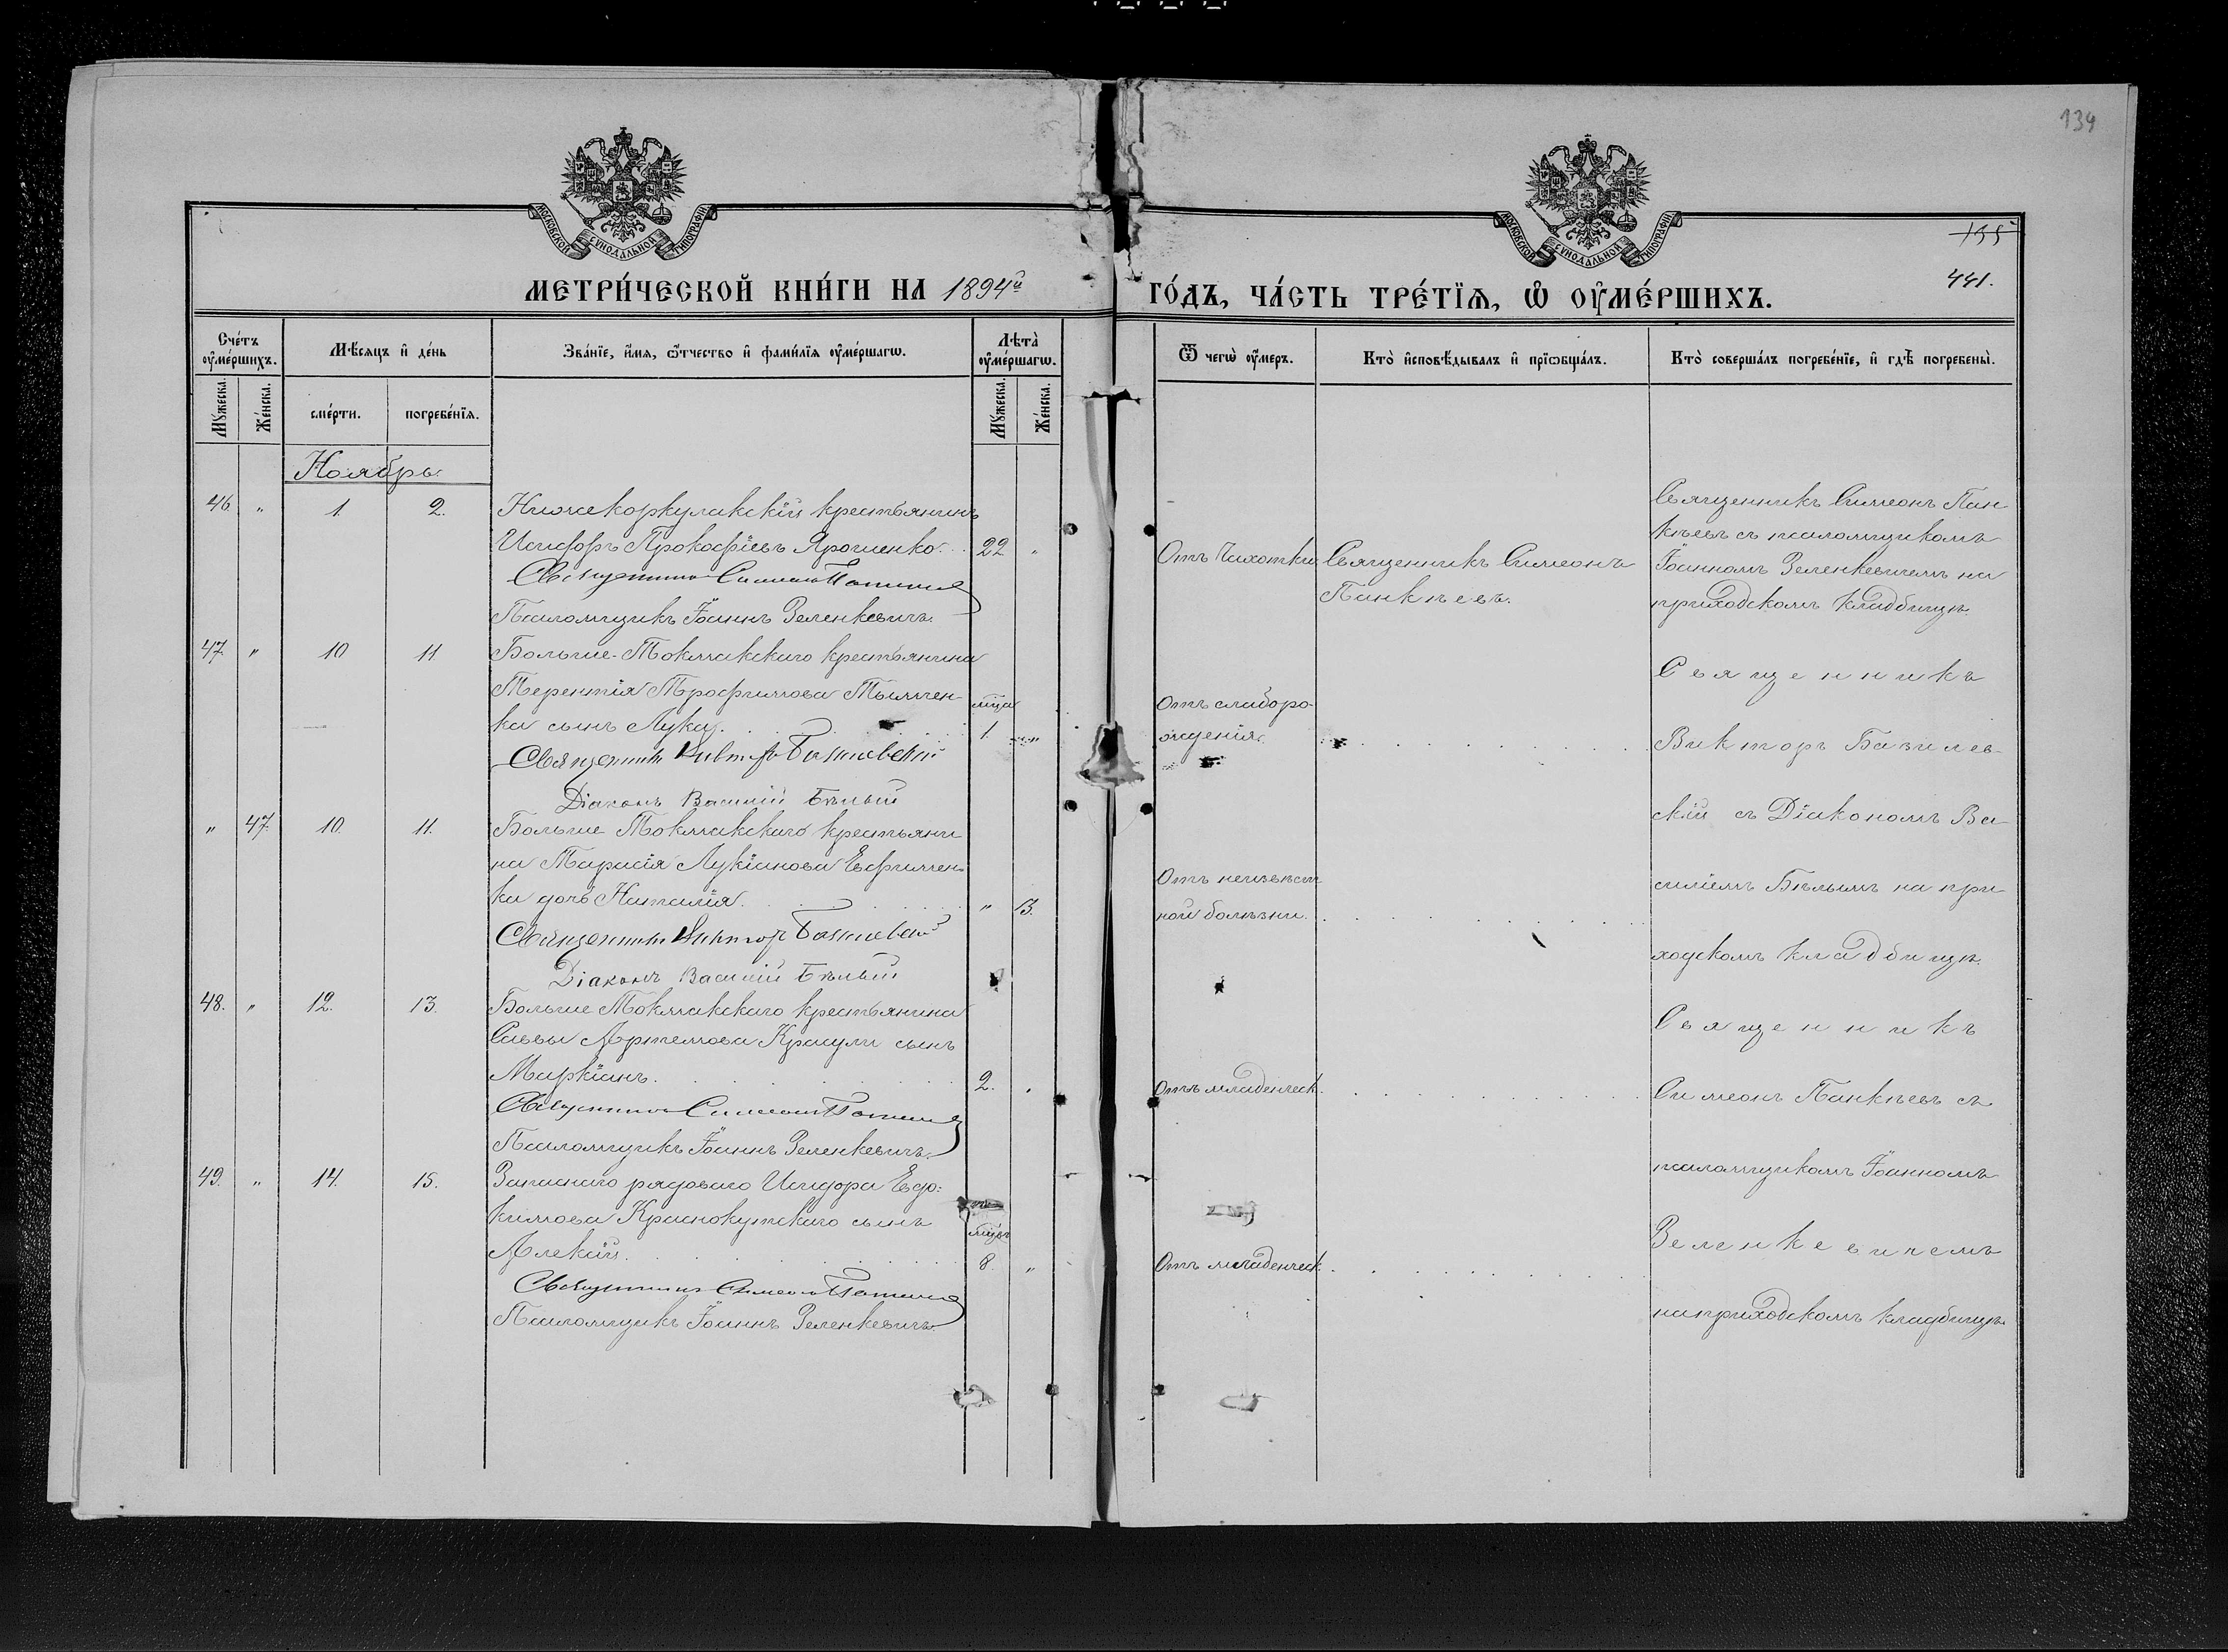 134
МОСКОВСКОЙ СУНОДАЛЬНОЙ ТИПОГРАФІИ
МОСКОВСКОЙ СУНОДАЛЬНОЙ ТИПОГРАФІИ
135
441.
МЕТРИ́ЧЕСКОЙ КНИ́ГИ НА 1894й
ГО́ДЪ, ЧА́СТЬ ТРЕ́ТЇѦ, Ѡ҆ ОУ҆МЕ́РШИХЪ.
Сче́тъ оу҆ме́ршихъ.
Мѣ́сѧцъ и҆ де́нь
Зва́нїе, и҆́мѧ, ѻ҆́тчество и҆ фами́лїѧ оу҆ме́ршагѡ.
Лѣ̀та оу҆ме́ршагѡ.
Мꙋ́жеска.
Же́нска.
сме́рти.
погребе́нїѧ.
Мꙋ́жеска.
Же́нска.
Ѿ чегѡ̀ оу҆́меръ.
Кто̀ и҆сповѣ́дывалъ и҆ прїѡбща́лъ.
Кто̀ соверша́лъ погребе́нїе, и҆ гдѣ̀ погребены̀.
Ноябрь.
46. " 1. 2. Нижекоркулакскій крестьянинъ
Исидоръ Прокофіевъ Ярошенко. 22 "
Священникъ Симеонъ Панкѣевъ
Псаломщикъ Іоаннъ Зеленкевичъ.
Отъ чахотки
Священникъ Симеонъ
Панкѣевъ.
Священникъ Симеонъ Пан
кѣевъ съ псаломщикомъ
Іоанномъ Зеленкевичемъ на
приходскомъ кладбищѣ.
47. " 10 11. Больше-Токмакскаго крестьянина
Терентія Трофимова Тымчен-
ка сынъ Лука. мѣца 1. "
Священникъ Викторъ Базилевскій
Діаконъ Василій Бѣлый
Отъ слаборо-
жденія.
Священникъ
Викторъ Базилев
скій съ Діакономъ Ва
силіемъ Бѣлымъ на при
ходскомъ кладбищѣ.
" 47. 10. 11. Больше Токмакскаго крестьяни
на Тарасія Лукіанова Евфимен
ка дочь Наталія. " 13.
Священникъ Викторъ Базилевскій
Діаконъ Василій Бѣлый
Отъ неизвѣст
ной болѣзни.
48. " 12. 13. Больше Токмакскаго крестьянина
Саввы Артемова Красули сынъ
Маркіанъ. 2.
Священникъ Симеонъ Панкѣевъ
Псаломщикъ Іоаннъ Зеленкевичъ.
Отъ младенческ.
Священникъ
Симеонъ Панкѣевъ съ
псаломщикомъ Іоанномъ
Зеленкевичемъ
на приходскомъ кладбищѣ.
49. " 14. 15. Запаснаго рядоваго Исидора Евдо:
кимова Краснокутскаго сынъ
Алексій. мѣцевъ 8. "
Священникъ Симеонъ Панкѣевъ
Псаломщикъ Іоаннъ Зеленкевичъ.
Отъ младенческ.